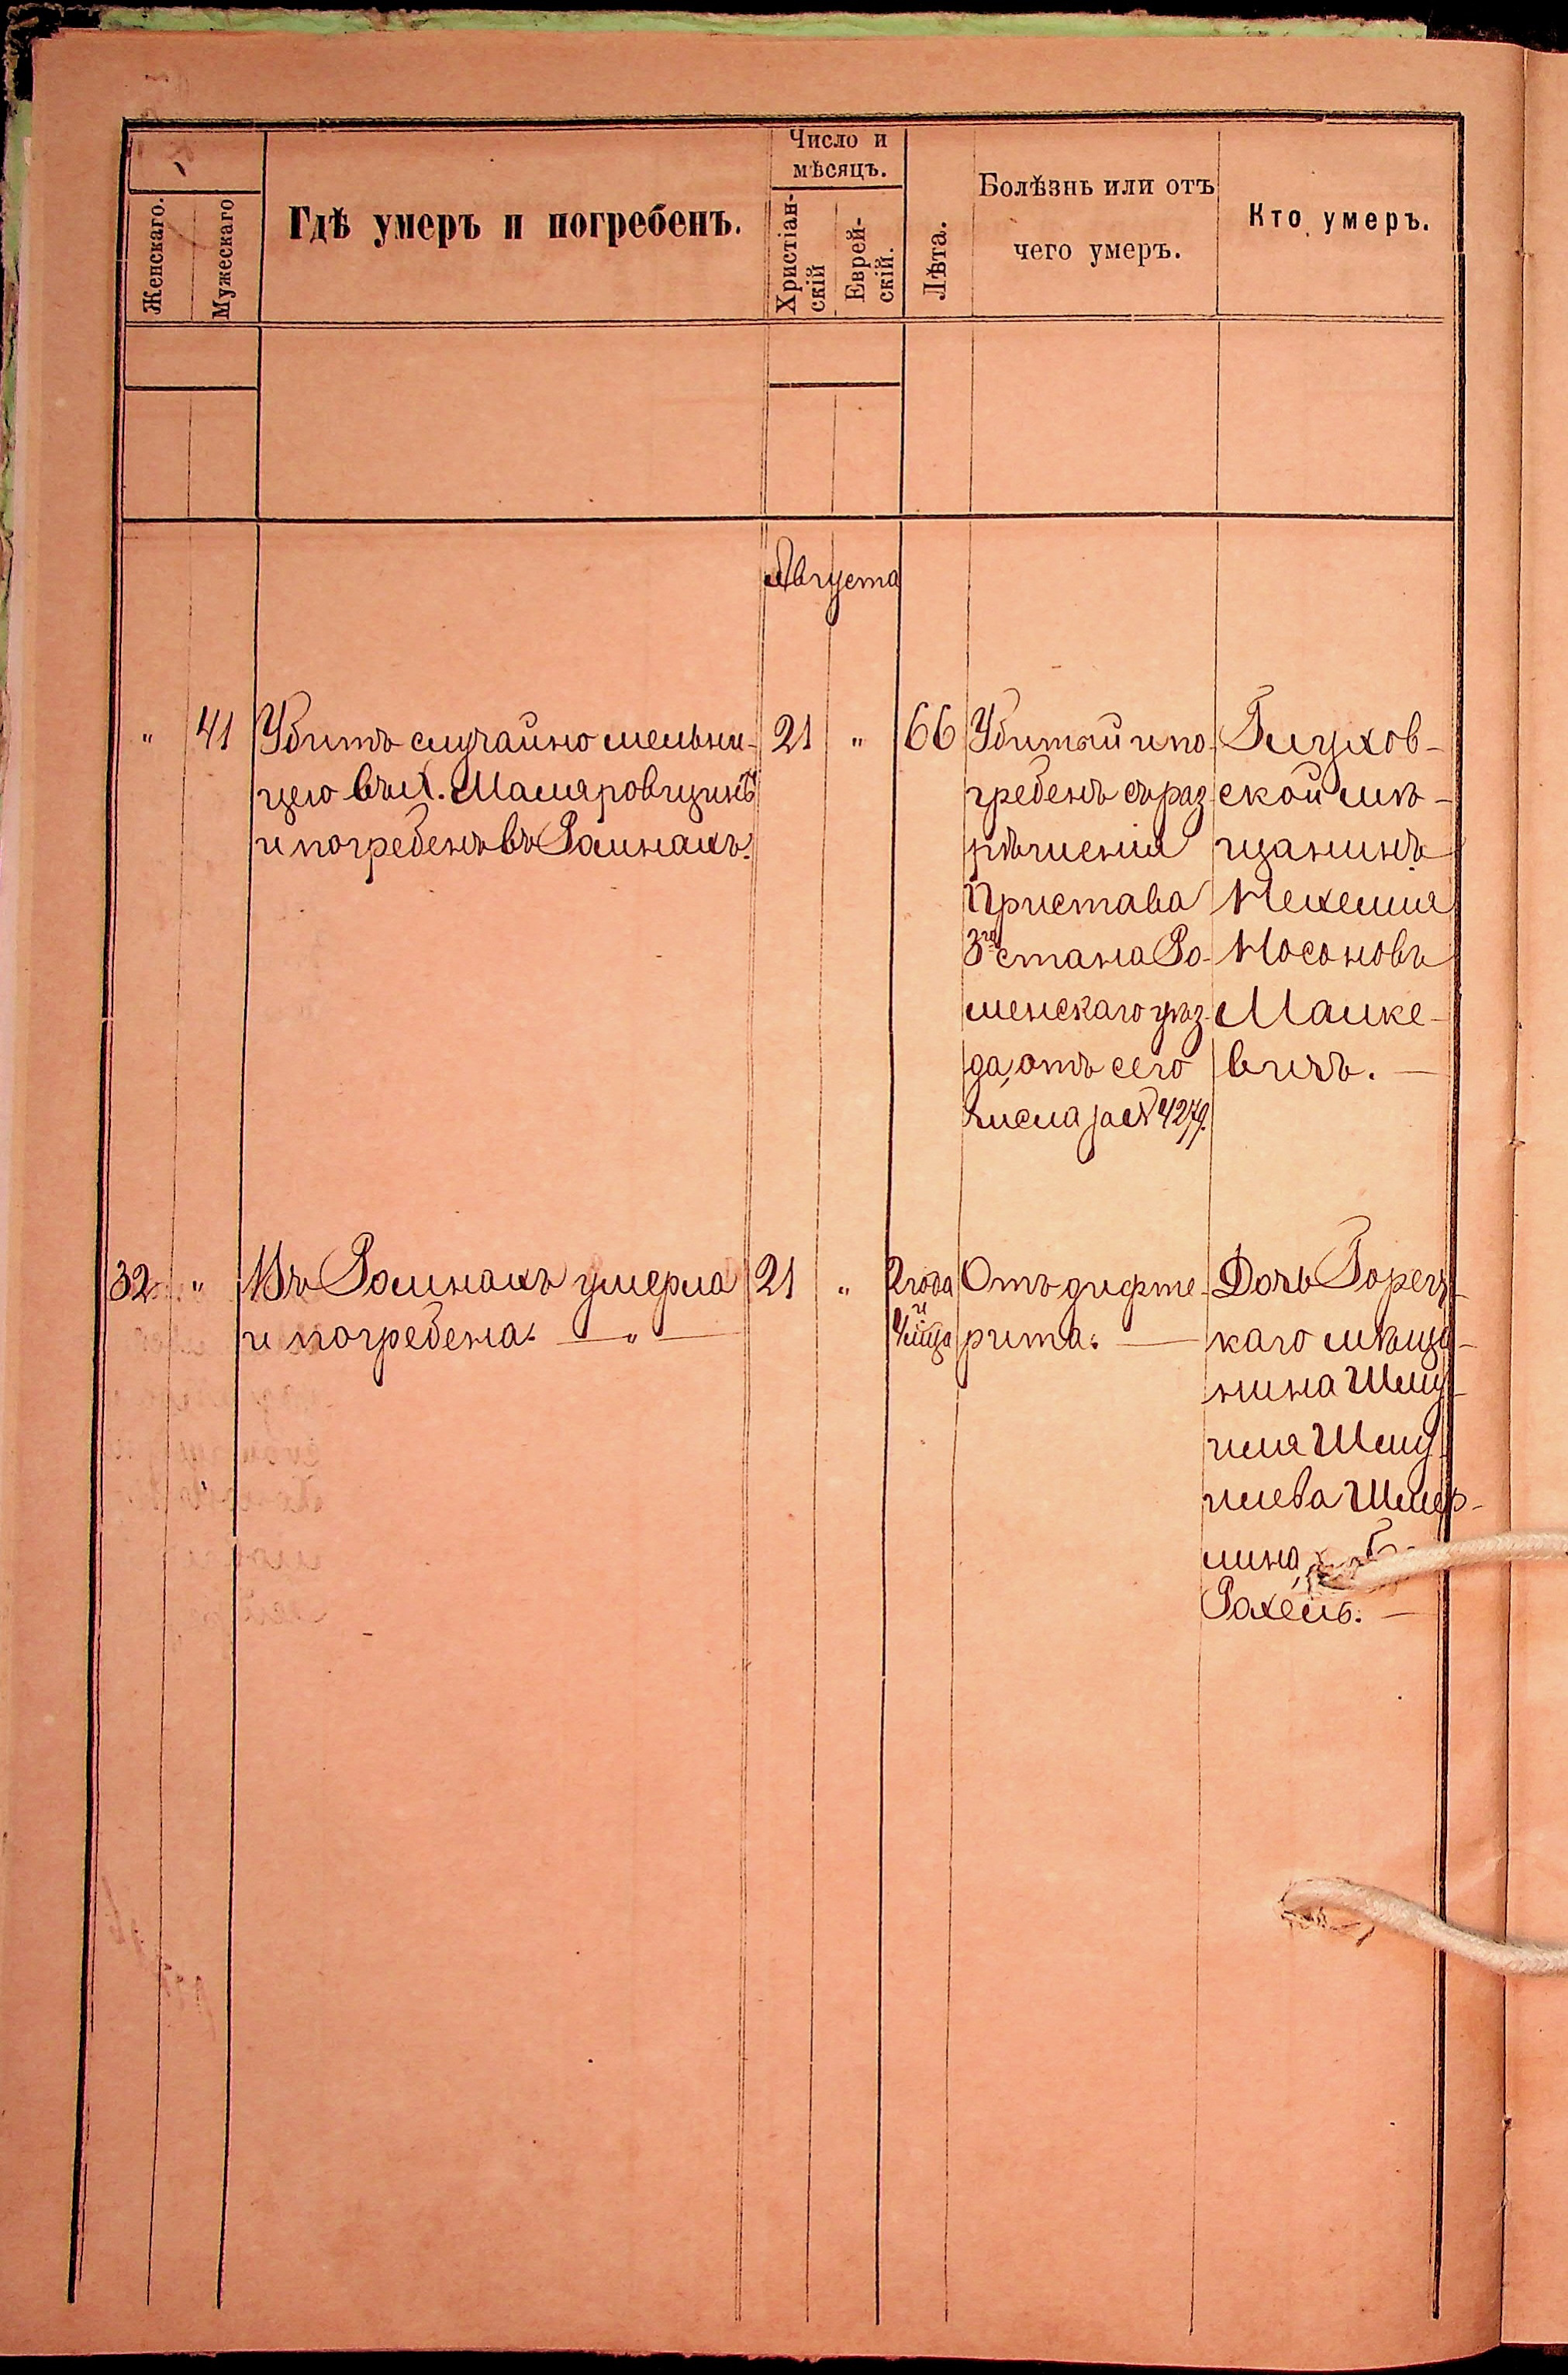 Женскаго.
Мужескаго
Гдѣ умеръ и погребенъ.
Число и
мѣсяцъ.
Христіан-
скій
Еврей-
скій.
Лѣта.
Болѣзнь или отъ
чего умеръ.
Кто умеръ.
Августа
" 41
Убитъ случайно мельни-
цею въ х.
и погребенъ въ Ромнахъ.
21 " 66
Убитый и по-
гребенъ съ раз-
рѣшенія
Пристава
3го стана Ро-
менскаго уѣз-
да, отъ сего
числа за № 4279.
Глухов-
ской мѣ-
щанинъ
Нехемия
Носоновъ
Маике-
вичъ. —
32 "
Въ Ромнахъ умерла
и погребена. — " —
21 "
2 года
и
мца
Отъ дифте-
рита. —
Дочь Горец-
каго мѣща-
нина Шму-
иля Шму-
илева Шмер-
лина,
Рахель. —